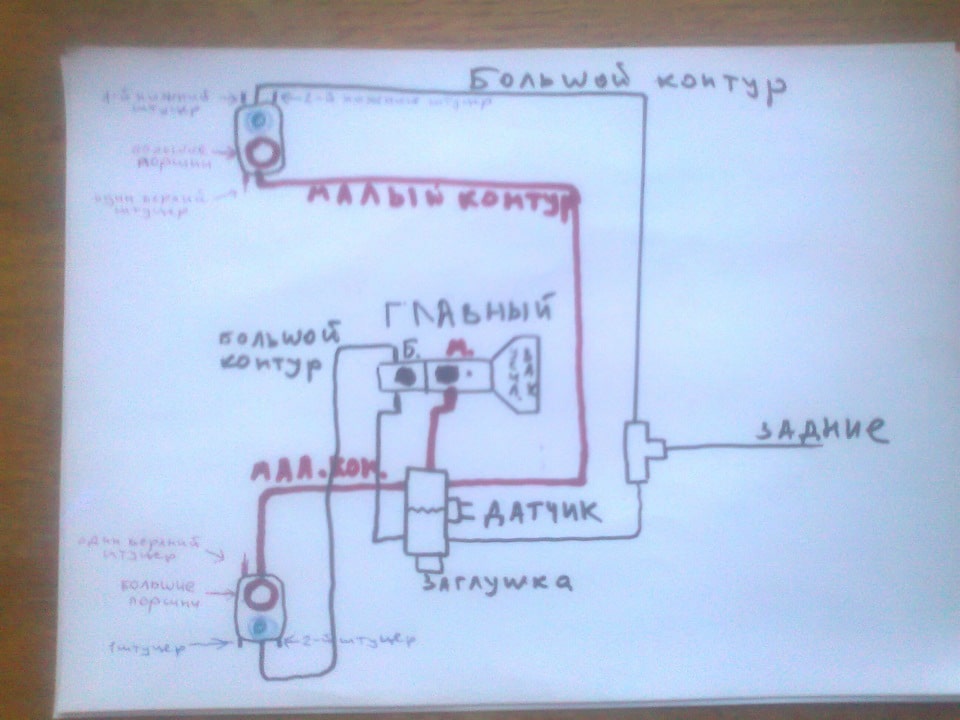 Большой контур
1-й нижний
штуцер
2-й нижний штуцер
большие
поршни
один верхний
штуцер
МАЛЫЙ КОНТУР
ГЛАВНЫЙ
БОЛЬШОЙ
КОНТУР
Б.
М.
ВАК
ЗАДНИЕ
МАЛ. КОН.
ДАТЧИК
ЗАГЛУШКА
один верхний
штуцер
большие
поршни
1 штуцер
2-й штуцер